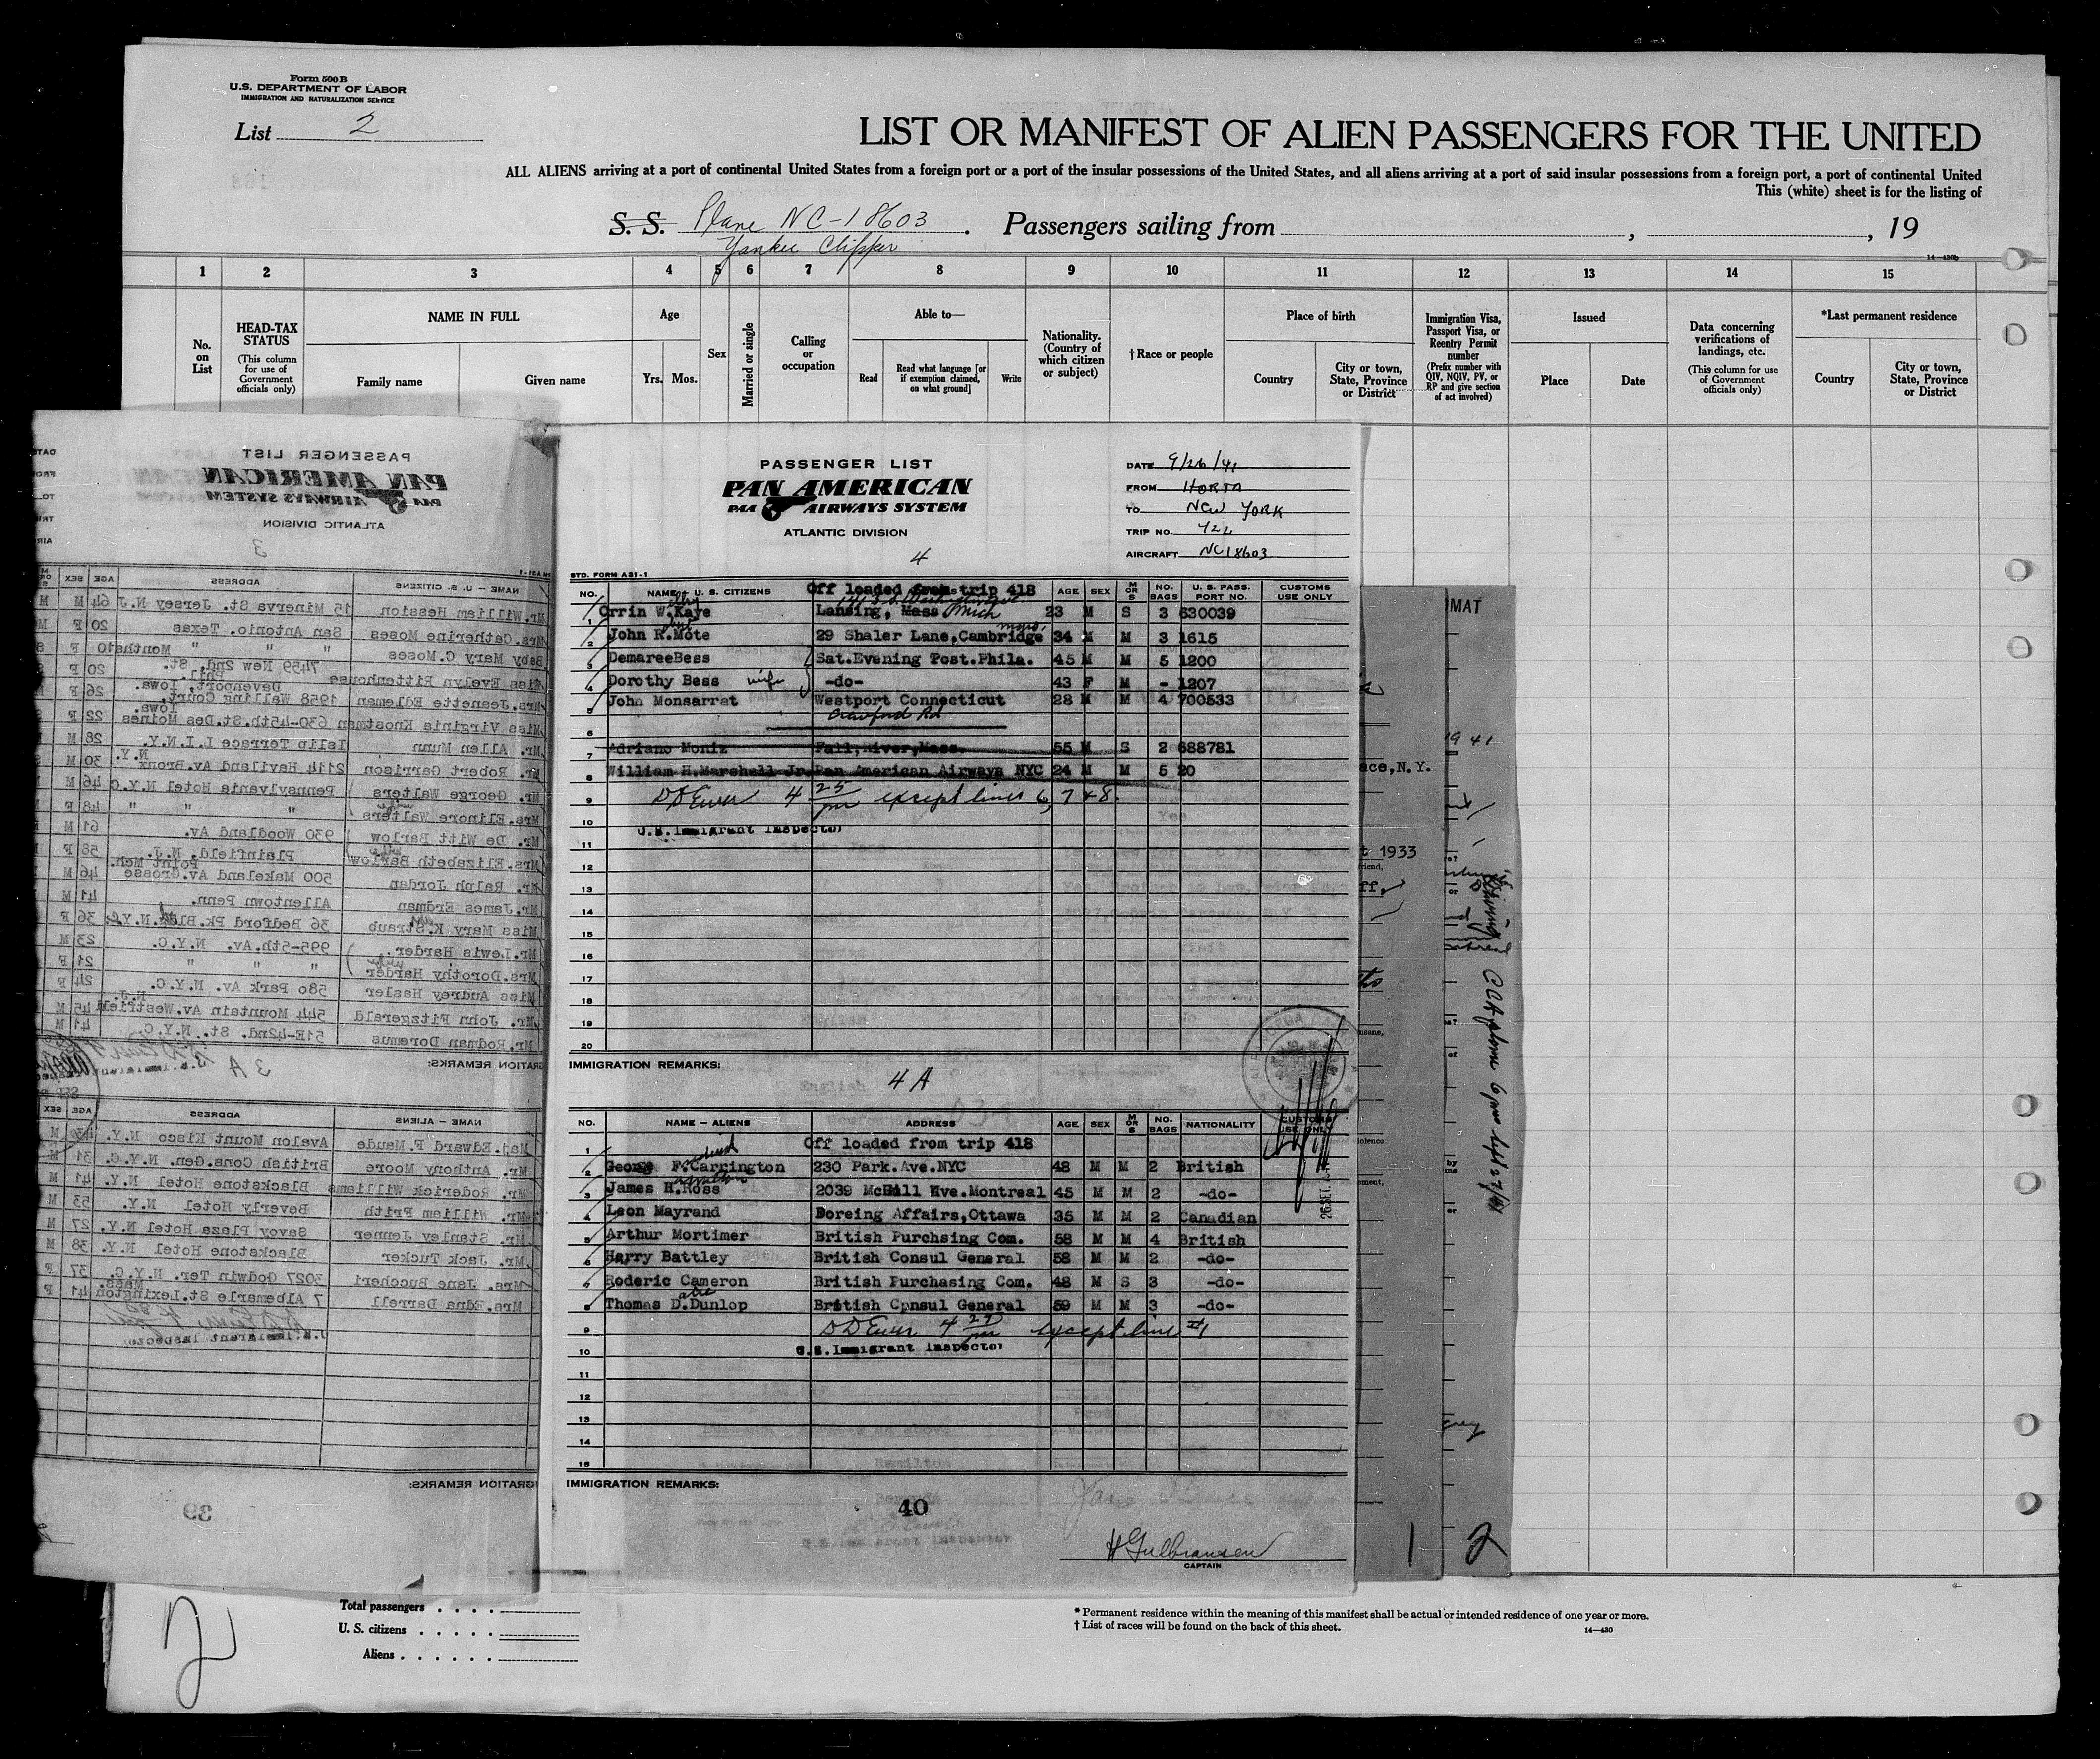 Form 500 B
U.S. DEPARTMENT OF LABOR
IMMIGRATION AND NATURALIZATION SERVICE
List 2
LIST OR MANIFEST OF ALIEN PASSENGERS FOR THE UNITED
ALL ALIENS arriving at a port of continental United States from a foreign port or a port of the insular possessions of the United States, and all aliens arriving at a port of said insular possessions from a foreign port, a port of continental United
This (white) sheet is for the listing of
S. S. Plane NC-18603 . Passengers sailing from , , 19
Yankee Clipper
14—430b
1 2 3 4 5 6 7 8 9 10 11 12 13 14 15
No. on List
HEAD-TAX STATUS
(This column for use of Government officials only)
NAME IN FULL
Family name Given name
Age
Yrs. Mos.
Sex
Married or single
Calling or occupation
Able to—
Read
Read what language [or if exemption claimed, on what ground]
Write
Nationality. (Country of which citizen or subject)
†Race or people
Place of birth
Country
City or town, State, Province or District
Immigration Visa, Passport Visa, or Reentry Permit number
(Prefix number with QIV, NQIV, PV, or RP and give section of act involved)
Issued
Place Date
Data concerning verifications of landings, etc.
(This column for use of Government officials only)
*Last permanent residence
Country
City or town, State, Province or District
PASSENGER LIST
PAN AMERICAN
PAA AIRWAYS SYSTEM
ATLANTIC DIVISION
3
NAME — U. S. CITIZENS ADDRESS AGE SEX
Mr.William Hession 15 Minerva St. Jersey N.J 64 M M
Mrs.Catherine Moses San Antonio. Texas 20 F M
Baby Mary C.Moses " " " Months10 F S
Miss Evelyn Rittenhouse 7459 New 2nd. St. Phil. 20 F
Mrs.Jeanette Edleman 1958 Walling Court. Davenport, Iowa. 26 F M
Miss Virginia Knostman 630-45th.St.Des Moines Iowa. 22 F
Mr. Allen Munn Islip Terrace L.I.N.Y. 28 M
Mr. Robert Garrison 2114 Haviland Av.Bronx N.Y. 30 M
Mr. George Walters Pennsylvania Hotel N.Y.C 46 M
Mrs.Elinore Walters " " " 48 F
Mr. De Witt Barlow 930 Woodland Av. 61 M
Mrs.Elizabeth Barlow Plainfield, N.J. 58 F
Mr. Ralph Jordan 500 Makeland Av.Grosse Point Mch. 46 M
Mr.James Erdman Allentown Penn. 41 M
Miss Mary K.Straub 36 Bedford Pk.Blvd.N.Y.C. 36 F
Mr.Lewis Harder. 995-5th.Av. N.Y.C. 23 M
Mrs.Dorothy Harder " " " 21 F
Miss Audrey Hasler 580 Park Av. N.Y.C. 24 F
Mr. John Fitzgerald 544 Mountain Av.Westfield N.J. 45 M
Mr.Rodman Doremus 51E-42nd. St. N.Y.C. 41 M
IMMIGRATION REMARKS:
3 A
NAME — ALIENS ADDRESS AGE SEX
Maj.Edward F.Meude Avalon Mount Kisco N.Y. M
Mr. Anthony Moore British Cons.Gen. N.Y.C. 31 M
Mr. Roderick Williams Blackstone Hotel N.Y. 41 M
Mr. William Frith Beverly Hotel N.Y. 53 M
Mr. Stanley Jenner Savoy Plaza Hotel N.Y. 27 M
Mr. Jack Tucker Blackstone Hotel N.Y. 38 M
Mrs. Jane Buccheri 3027 Godwin Ter. N.Y.C. 37 F
Mrs.Edna Darrell 7 Albemarle St.Lexington Mass. 41 F
U.S. Immigrant Inspector
IMMIGRATION REMARKS:
39
PASSENGER LIST
PAN AMERICAN
PAA AIRWAYS SYSTEM
ATLANTIC DIVISION
4
DATE 9/26/41
FROM HORTA
TO NEW YORK
TRIP NO. 422
AIRCRAFT NC18603
STD. FORM A31-1
NO. NAME — U. S. CITIZENS Off loaded from trip 418 AGE SEX M OR S NO. BAGS U. S. PASS. PORT NO. CUSTOMS USE ONLY
1 Orrin W.Kaye Lansing, Mass Mich 23 M S 3 630039
2 John R.Mote 29 Shaler Lane.Cambridge Mass. 34 M M 3 1615
3 DemareeBess Sat.Evening Post.Phila. 45 M M 5 1200
4 Dorothy Bess wife -do- 43 F M - 1207
5 John Monsarrat Westport Connecticut 28 M M 4 700533
Crawford Rd
6
7 Adriano Moniz Fall,River,Mass. 55 M S 2 688781
8 William H.Marshall Jr.Pan American Airways NYC 24 M M 5 20
9 4 25 pm except lines 6, 7 & 8.
10 U.S.Immigrant Inspector
11
12
13
14
15
16
17
18
19
20
IMMIGRATION REMARKS:
4 A
NO. NAME — ALIENS ADDRESS AGE SEX M OR S NO. BAGS NATIONALITY CUSTOMS USE ONLY
1 Off loaded from trip 418
2 George F.Carrington 230 Park.Ave.NYC 48 M M 2 British
3 James H.Ross 2039 McGill Ave.Montreal 45 M M 2 -do-
4 Leon Mayrand Doreing Affairs,Ottawa 35 M M 2 Canadian
5 Arthur Mortimer British Purchsing Com. 58 M M 4 British
6 Harry Battley British Consul General 58 M M 2 -do-
7 Roderic Cameron British Purchasing Com. 48 M S 3 -do-
8 Thomas D.Dunlop British Cpnsul General 59 M M 3 -do-
9 4 27 pm except line #1
10 U.S.Immigrant Inspector
11
12
13
14
15
IMMIGRATION REMARKS:
40
H Gulbransen
CAPTAIN
ace,N.Y.
t 1933
1
2
2
Total passengers
U. S. citizens
Aliens
* Permanent residence within the meaning of this manifest shall be actual or intended residence of one year or more.
† List of races will be found on the back of this sheet.
14—430